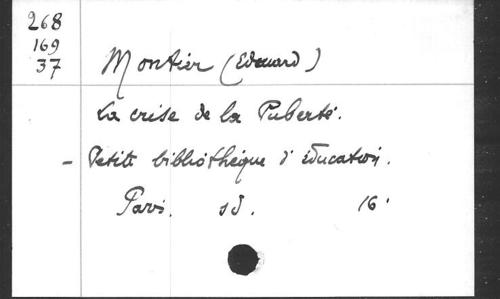 268
169
37
Montier (Edouard)
La crise de la Puberté.
- Petite bibliothèque d'éducation.
Paris. sd. 16°